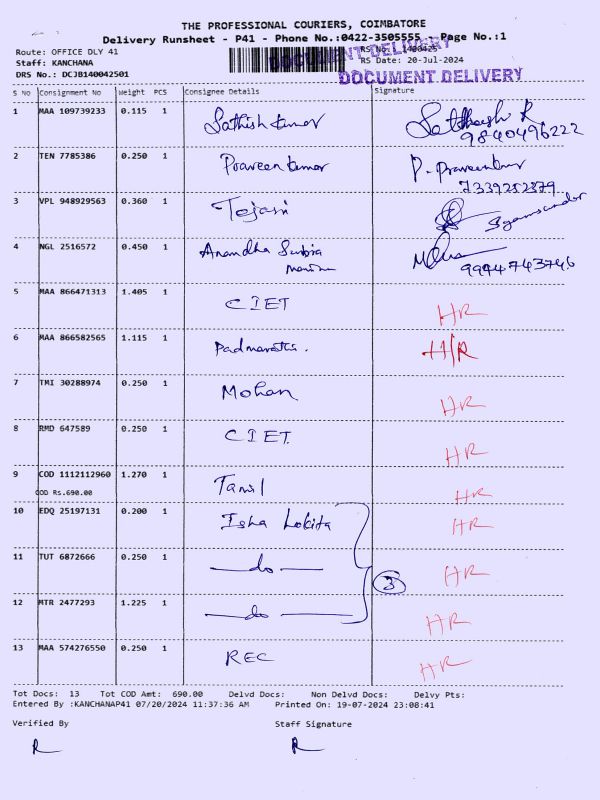 THE PROFESSIONAL COURIERS, COIMBATORE
Delivery Runsheet - P41 - Phone No.:0422-3505555 - Page No.:1
Route: OFFICE DLY 41
RS No.: 1400425
Staff: KANCHANA
RS Date: 20-Jul-2024
DRS No.: DCJB140042501
DOCUMENT DELIVERY
DOCUMENT DELIVERY
S No Consignment No Weight PCS Consignee Details Signature
1 MAA 109739233 0.115 1 Sathish kumar Sathish R
9840496222
2 TEN 7785386 0.250 1 Praveen kumar P. Praveenkumar
7339252379
3 VPL 948929563 0.360 1 Tejasri
4 NGL 2516572 0.450 1 Anandha
9994743746
5 MAA 866471313 1.405 1 CIET HR
6 MAA 866582565 1.115 1 Padmavathi. H/R
7 TMI 30288974 0.250 1 Mohan HR
8 RMD 647589 0.250 1 CIET. HR
9 COD 1112112960 1.270 1 Tamil HR
COD Rs.690.00
10 EDQ 25197131 0.200 1 Isha Lokita HR
11 TUT 6872666 0.250 1 —do— 3 HR
12 MTR 2477293 1.225 1 —do— HR
13 MAA 574276550 0.250 1 REC HR
Tot Docs: 13 Tot COD Amt: 690.00 Delvd Docs: Non Delvd Docs: Delvy Pts:
Entered By :KANCHANAP41 07/20/2024 11:37:36 AM Printed On: 19-07-2024 23:08:41
Verified By Staff Signature
R R